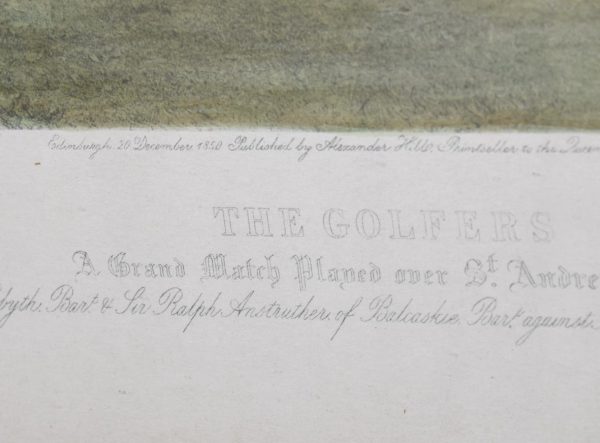 Edinburgh, 20 December 1850 Published by Alexander Hill, Printseller to the Queen
THE GOLFERS
A Grand Match Played over St. Andre
byth, Bart. & Sir Ralph Anstruther, of Balcaskie, Bart. against